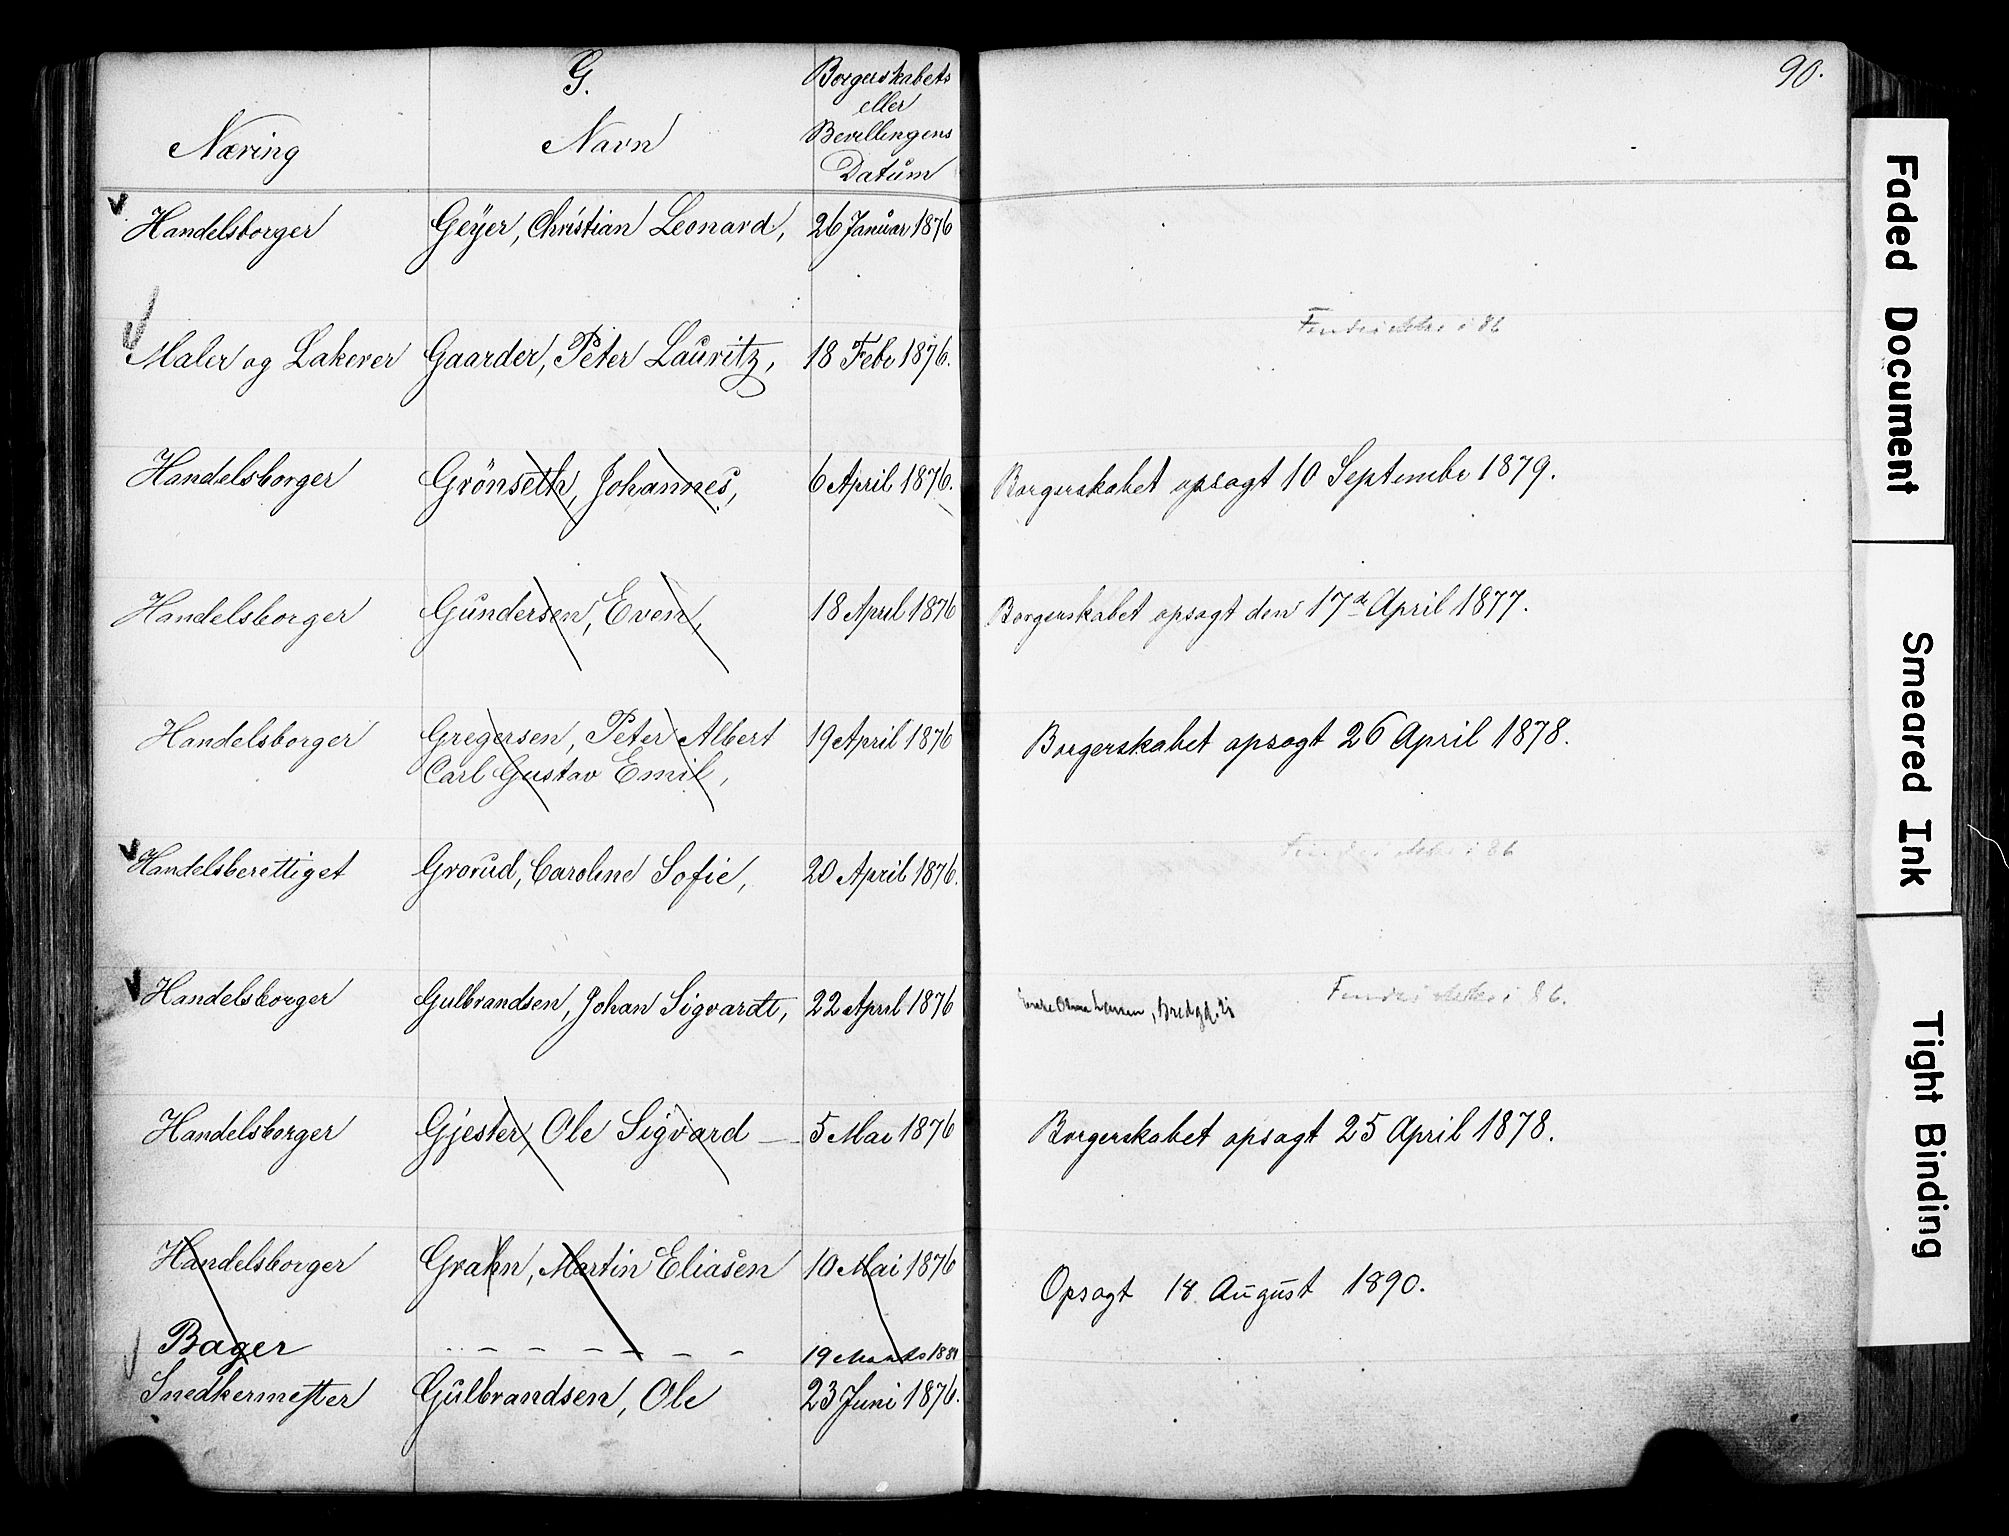 G.
90.
Næring
Navn
Borgerskabets
eller
Bevillingens
Datum
Handelsborger Geyer, Christian Leonard, 26 Januar 1876
Maler og Lakerer Gaarder, Peter Lauritz, 18 Febr 1876. Findes ikke i 86
Handelsborger Grönseth, Johannes, 6 April 1876. Borgerskabet opsagt 10 Septembr 1879.
Handelsborger Gundersen, Even, 18 April 1876 Borgerskabet opsagt den 17de April 1877.
Handelsborger Gregersen, Peter Albert 19 April 1876 Borgerskabet opsagt 26 April 1878.
Carl Gustav Emil,
Handelsberettiget Grorud, Caroline Sofie, 20 April 1876. Findes ikke i 86
Handelsborger Gulbrandsen, Johan Sigvardt, 22 April 1876 Enke Larsen, Bredgd. Findes ikke i 86.
Handelsborger Gjester, Ole Sigvard — 5 Mai 1876 Borgerskabet opsagt 25 April 1878.
Handelsborger Grahn, Martin Eliasen 10 Mai 1876 Opsagt 18 August 1890.
Bager — — — — — — 19 Marts 188
Snedkermester Gulbrandsen, Ole 23 Juni 1876.
Faded Document
Smeared Ink
Tight Binding